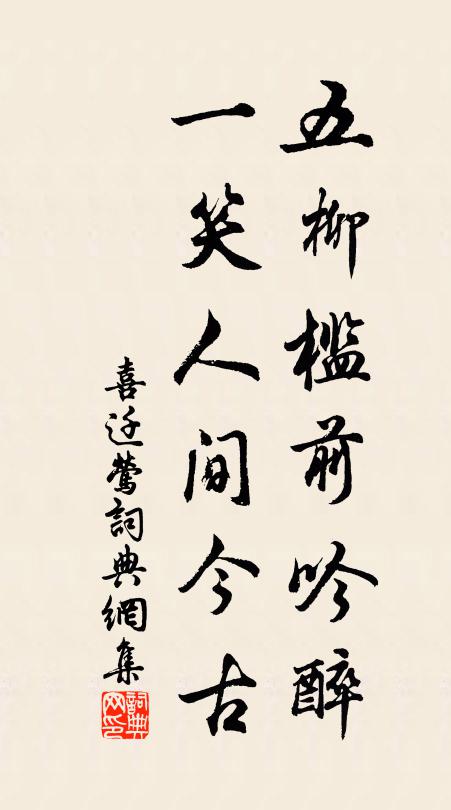 五柳檻前吟醉
一笑人間今古
喜迁鶯詞典網集
詞典网印